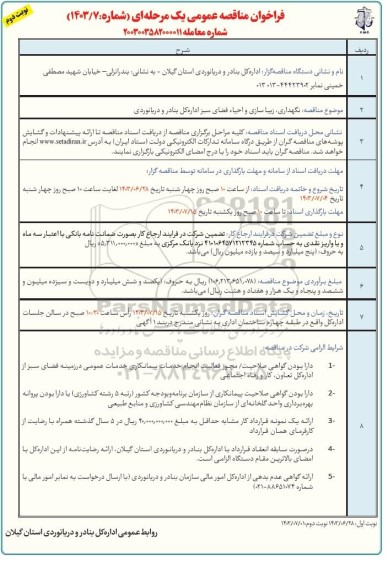 نوبت دوم
فراخوان مناقصه عمومی یک مرحله‌ای (شماره:۱۴۰۳/۷)
شماره معامله ۲۰۰۳۰۰۳۵۸۲۰۰۰۰۱۱
ردیف
شرح
۱
نام و نشانی دستگاه مناقصه‌گزار: اداره‌کل بنادر و دریانوردی استان گیلان - به نشانی: بندرانزلی- خیابان شهید مصطفی
خمینی نمابر ۴۴۴۲۳۹۰۲-۰۱۳
۲
موضوع مناقصه: نگهداری، زیبا سازی و احیاء فضای سبز اداره‌کل بنادر و دریانوردی
۳
نشانی محل دریافت اسناد مناقصه: کلیه مراحل برگزاری مناقصه از دریافت اسناد مناقصه تا ارائه پیشنهادات و گشایش
پوشه‌های مناقصه گران از طریق درگاه سامانه تدارکات الکترونیکی دولت (ستاد ایران) به آدرس www.setadiran.ir انجام
خواهد شد. مناقصه گران باید اسناد خود را با درج امضای الکترونیکی بارگزاری نمایند.
۴
مهلت دریافت اسناد از سامانه و مهلت بارگذاری در سامانه توسط مناقصه گران:
تاریخ شروع و خاتمه دریافت اسناد: از ساعت ۱۰ صبح روز چهار شنبه تاریخ ۱۴۰۳/۰۶/۲۸ لغایت ساعت ۱۰ صبح روز چهار شنبه
تاریخ
مهلت بارگذاری اسناد: تا ساعت ۱۰ صبح روز یکشنبه تاریخ ۱۴۰۳/۰۷/۱۵
۵
نوع و مبلغ تضمین شرکت درفرایند ارجاع کار: تضمین شرکت در فرایند ارجاع کار بصورت ضمانت نامه بانکی با اعتبار سه ماه
و یا واریز نقدی به حساب شماره نزد بانک مرکزی به مبلغ ریال
به حروف: (پنج میلیارد و سیصد و یازده میلیون ریال) می‌باشد.
۶
مبلغ برآوردی موضوع مناقصه: (۱۰۶,۲۱۳,۶۵۱,۰۷۸) ریال به حروف: (یکصد و شش میلیارد و دویست و سیزده میلیون و
ششصد و پنجاه و یک هزار و هفتاد و هشت ریال) می‌باشد.
۷
تاریخ، زمان و محل گشایش اسناد مناقصه گران: روز یکشنبه تاریخ ۱۴۰۳/۰۷/۱۵ راس ساعت ۱۰:۳۰ صبح در سالن جلسات
اداره‌کل واقع در طبقه چهارم ساختمان اداری به نشانی مندرج دربند ۱ آگهی
۸
شرایط الزامی شرکت در مناقصه:
۱- دارا بودن گواهی صلاحیت/ مجوز فعالیت انجام خدمات پیمانکاری خدمات عمومی درزمینه فضای سبز از
اداره‌کل تعاون، کار و رفاه اجتماعی
۲- دارا بودن گواهی صلاحیت پیمانکاری از سازمان برنامه‌وبودجه کشور (رتبه ۵ رشته کشاورزی) یا دارا بودن پروانه
بهره‌برداری واحد گلخانه‌ای از سازمان نظام مهندسی کشاورزی و منابع طبیعی
۳- ارائه یک نمونه قرارداد کار مشابه حداقل به مبلغ ریال در ۵ سال گذشته همراه با رضایت از
کارفرمای همان قرارداد
۴- درصورت سابقه انعقاد قرارداد با اداره‌کل بنادر و دریانوردی استان گیلان، ارائه رضایت‌نامه از این اداره‌کل با
امضای بالاترین مقام دستگاه الزامی است.
۵- ارائه گواهی عدم بدهی از اداره‌کل امور مالی سازمان بنادر و دریانوردی (با ارسال درخواست به نمابر امور مالی با
شماره ۸۸۶۵۱۰۷۴-۰۲۱)
نوبت اول: ۱۴۰۳/۰۶/۲۸ نوبت دوم: ۱۴۰۳/۰۷/۰۱
روابط عمومی اداره‌کل بنادر و دریانوردی استان گیلان
ParsNamadData
پایگاه اطلاع رسانی مناقصه و مزایده